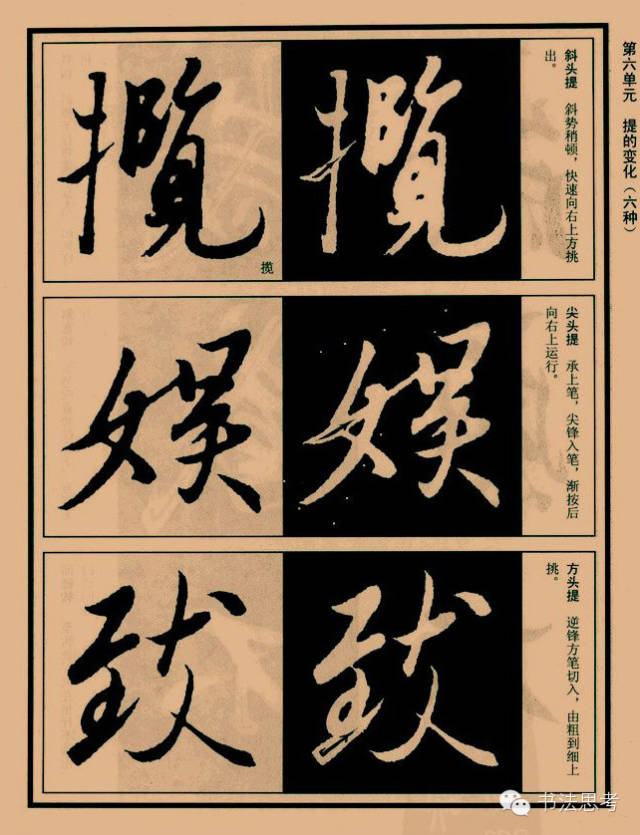 第六单元 提的变化(六种)
斜头提 斜势稍顿,快速向右上方挑
出。
揽
攬
攬
揽
尖头提 承上笔,尖锋入笔,渐按后
向右上运行。
娱
娱
方头提 逆锋方笔切入,由粗到细上
挑。
致
致
书法思考